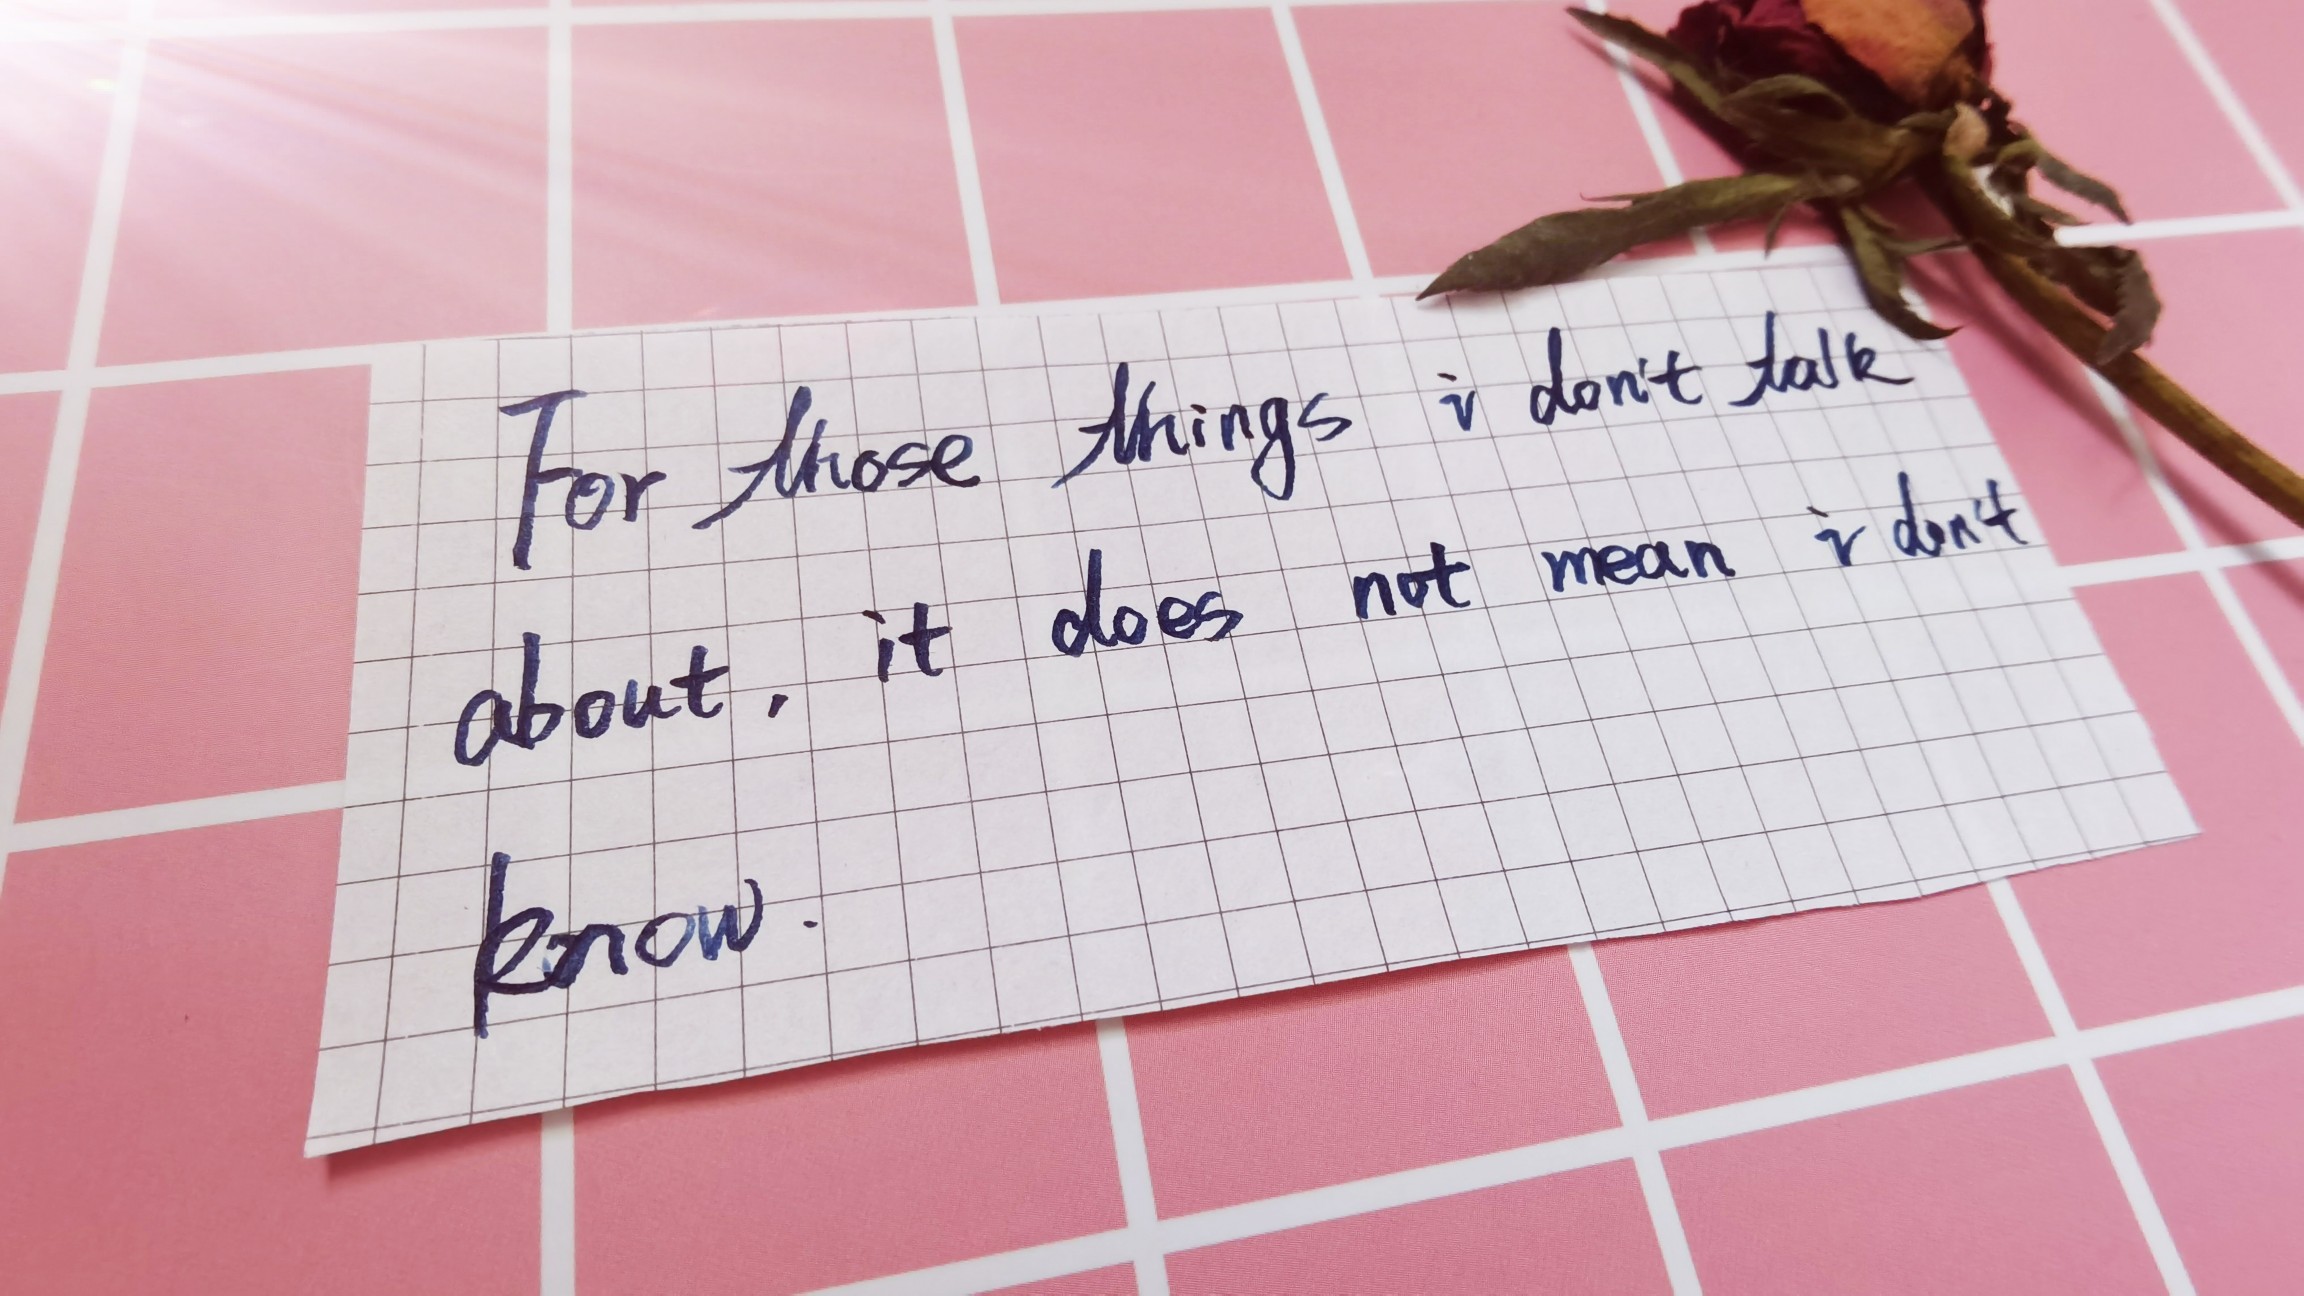 For those things i don't talk
about, it does not mean i don't
know.